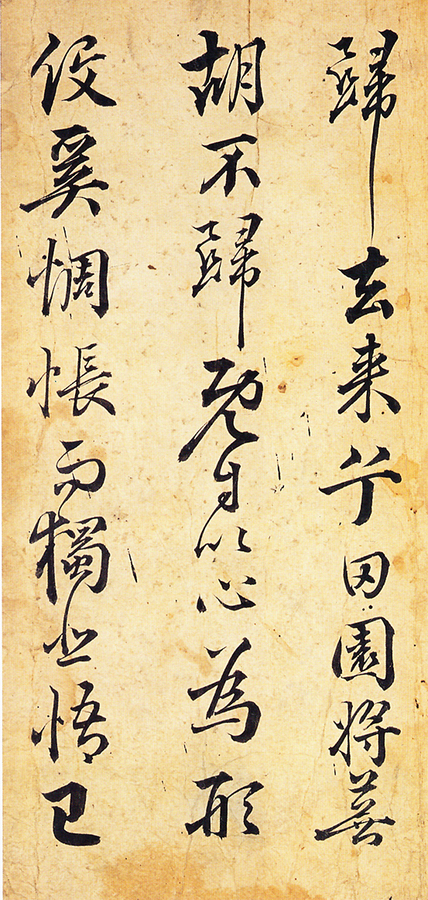 歸去来兮田園將蕪
胡不歸既自以心為形
役奚惆悵而獨悲悟已